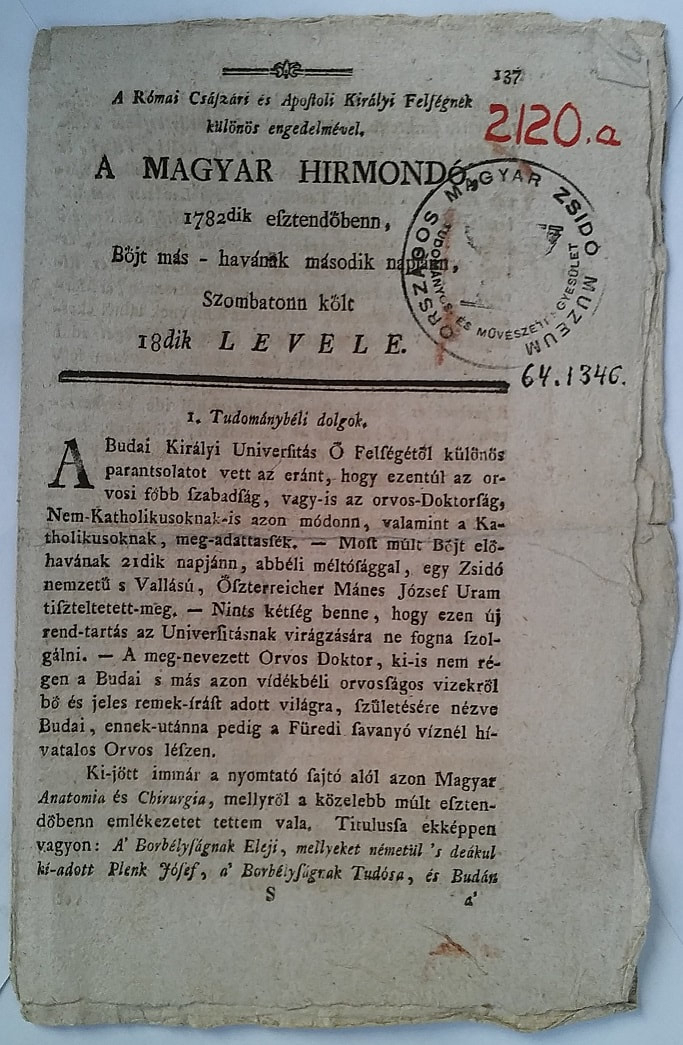 137
A Római Cſáſzári és Apoſtoli Királyi Felſégnek
különös engedelmével.
2120.a
A MAGYAR HIRMONDÓ,
1782dik eſztendőbenn,
Bőjt más-havának második napjánn,
Szombatonn költ
18dik LEVELE.
ORSZÁGOS MAGYAR ZSIDÓ MUZEUM
TUDOMÁNYOS ÉS MŰVÉSZETI EGYESÜLET
64.1346.
1. Tudománybéli dolgok.
A Budai Királyi Univerſitás Ő Felſégétől különös
parantsolatot vett az eránt, hogy ezentúl az or-
vosi főbb ſzabadſág, vagy-is az orvos-Doktorſág,
Nem-Katholikusoknak-is azon módonn, valamint a Ka-
tholikusoknak, meg-adattasſék. — Moſt múlt Bőjt elő-
havának 21dik napjánn, abbéli méltóſággal, egy Zsidó
nemzetű s Vallású, Őſzterreicher Mánes Jóſzef Uram
tiſzteltetett-meg. — Nints kétſég benne, hogy ezen új
rend-tartás az Univerſitásnak virágzására ne fogna ſzol-
gálni. — A meg-nevezett Orvos Doktor, ki-is nem ré-
gen a Budai s más azon vídékbéli orvosſágos vizekről
bő és jeles remek-íráſt adott világra, ſzületésére nézve
Budai, ennek-utánna pedig a Füredi ſavanyó víznél hí-
vatalos Orvos léſzen.
Ki-jött immár a nyomtató ſajtó alól azon Magyar
Anatomia és Chirurgia, mellyről a közelebb múlt eſzten-
dőbenn emlékezetet tettem vala. Titulusſa ekképpen
vagyon: A' Borbélyſágnak Eleji, mellyeket németül 's deákul
ki-adott Plenk Jóſef, a' Borbélyſágnak Tudósa, és Budán
S a'